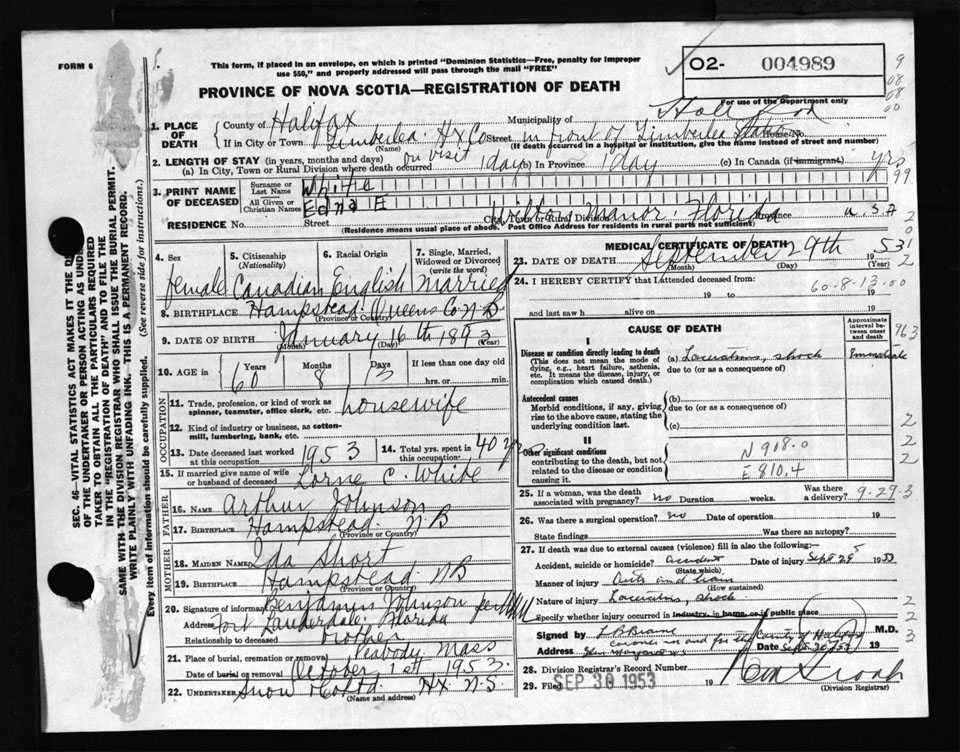 FORM 6
This form, if placed in an envelope, on which is printed "Dominion Statistics—Free, penalty for improper
use $50," and properly addressed will pass through the mail "FREE"
O2- 004989
For use of the Department only
PROVINCE OF NOVA SCOTIA—REGISTRATION OF DEATH
SEC. 46—VITAL STATISTICS ACT MAKES IT THE
OF THE UNDERTAKER OR PERSON ACTING AS UNDER
TAKER TO OBTAIN ALL THE PARTICULARS REQUIRED
IN THE "REGISTRATION OF DEATH" AND TO FILE THE
SAME WITH THE DIVISION REGISTRAR WHO SHALL ISSUE THE BURIAL PERMIT.
WRITE PLAINLY WITH UNFADING INK. THIS IS A PERMANENT RECORD.
Every item of information should be carefully supplied. (See reverse side for instructions.)
1. PLACE OF DEATH
County of Halifax Municipality of
If in City or Town Timberlea Hx Co Street in front of Timberlea House No.
(Name) (If death occurred in a hospital or institution, give the name instead of street and number)
2. LENGTH OF STAY (in years, months and days)
(a) In City, Town or Rural Division where death occurred on visit 1 day (b) In Province 1 day (c) In Canada (if immigrant) yrs
3. PRINT NAME OF DECEASED
Surname or Last Name White
All Given or Christian Names Edna E
RESIDENCE No. Street City, Town or Rural Division Wilton Manor Florida Province U.S.A
(Residence means usual place of abode. Post Office Address for residents in rural parts not sufficient)
4. Sex female
5. Citizenship (Nationality) Canadian
6. Racial Origin English
7. Single, Married, Widowed or Divorced (write the word) Married
8. BIRTHPLACE Hampstead Queens Co N.B
(Province or Country)
9. DATE OF BIRTH January 16th 1893
(Month) (Day) (Year)
10. AGE in Years 60 Months 8 Days If less than one day old hrs. or min.
OCCUPATION
11. Trade, profession, or kind of work as spinner, teamster, office clerk, etc. housewife
12. Kind of industry or business, as cotton-mill, lumbering, bank, etc.
13. Date deceased last worked at this occupation 1953
14. Total yrs. spent in this occupation 40 yrs
15. If married give name of wife or husband of deceased Lorne C. White
FATHER
16. NAME Arthur Johnson
17. BIRTHPLACE Hampstead N.B
(Province or Country)
MOTHER
18. MAIDEN NAME Ida Short
19. BIRTHPLACE Hampstead NB
(Province or Country)
20. Signature of informant Benjamin Johnson per
Address Fort Lauderdale, Florida
Relationship to deceased brother
21. Place of burial, cremation or removal Peabody Mass
Date of burial or removal October 1st 1953
22. UNDERTAKER Snow & Co Ltd Hx N.S.
(Name and address)
MEDICAL CERTIFICATE OF DEATH
23. DATE OF DEATH September 29th 53
(Month) (Day) (Year)
24. I HEREBY CERTIFY that I attended deceased from:
19 to 19
60-8-13-00
and last saw h alive on 19
CAUSE OF DEATH
Approximate interval between onset and death
I
Disease or condition directly leading to death
(This does not mean the mode of dying, e.g., heart failure, asthenia, etc. It means the disease, injury, or complication which caused death.)
(a) Lacerations, shock Immediate
due to (or as a consequence of)
Antecedent causes
Morbid conditions, if any, giving rise to the above cause, stating the underlying condition last.
(b)
due to (or as a consequence of)
(c)
II
Other significant conditions
contributing to the death, but not related to the disease or condition causing it.
N 908.0
E 810.4
25. If a woman, was the death associated with pregnancy? no Duration weeks. Was there a delivery?
9-29-3
26. Was there a surgical operation? no Date of operation
State findings Was there an autopsy?
27. If death was due to external causes (violence) fill in also the following:
Accident, suicide or homicide? accident Date of injury Sept 29 1953
(State which)
Manner of injury Auto and tram
(How sustained)
Nature of injury Lacerations, shock
Specify whether injury occurred in industry, in home, or in public place
Signed by M.D.
Coroner in and for the County of Halifax
Address Date Sept 30/53 19
28. Division Registrar's Record Number
29. Filed SEP 30 1953 19
(Division Registrar)